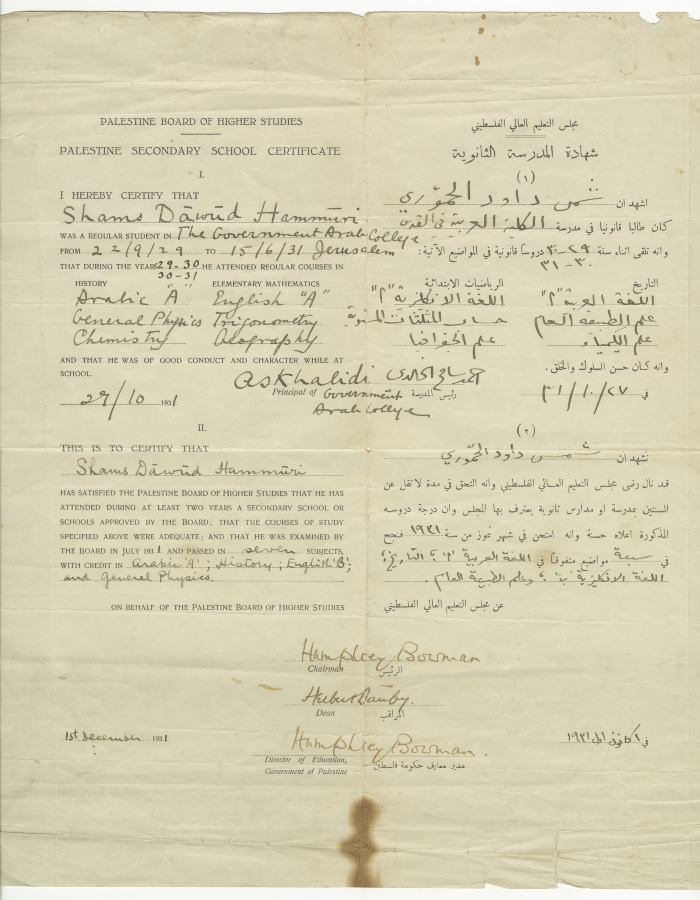 PALESTINE BOARD OF HIGHER STUDIES
PALESTINE SECONDARY SCHOOL CERTIFICATE
I.
I HEREBY CERTIFY THAT
Shams Dāwūd Hammūri
WAS A REGULAR STUDENT IN The Government Arab College
FROM 22/9/29 TO 15/6/31 Jerusalem
THAT DURING THE YEAR 29-30 HE ATTENDED REGULAR COURSES IN
30-31
HISTORY ELEMENTARY MATHEMATICS
Arabic "A" English "A"
General Physics Trigonometry
Chemistry Geography
AND THAT HE WAS OF GOOD CONDUCT AND CHARACTER WHILE AT
SCHOOL.
29/10 1931
II.
THIS IS TO CERTIFY THAT
Shams Dāwūd Hammūri
HAS SATISFIED THE PALESTINE BOARD OF HIGHER STUDIES THAT HE HAS
ATTENDED DURING AT LEAST TWO YEARS A SECONDARY SCHOOL OR
SCHOOLS APPROVED BY THE BOARD; THAT THE COURSES OF STUDY
SPECIFIED ABOVE WERE ADEQUATE; AND THAT HE WAS EXAMINED BY
THE BOARD IN JULY 1931 AND PASSED IN seven SUBJECTS,
WITH CREDIT IN Arabic 'A'; History; English 'B';
and General Physics.
ON BEHALF OF THE PALESTINE BOARD OF HIGHER STUDIES
مجلس التعليم العالي الفلسطيني
شهادة المدرسة الثانوية
(١)
اشهد ان شمس داود الحمّوري
كان طالبا قانونيا في مدرسة الكلية العربية في القدس
وانه تلقى اثناء سنة ٢٩-٣٠ دروسا قانونية في المواضيع الآتية:
٣٠-٣١
التاريخ الرياضيات الابتدائية
اللغة العربية "أ" اللغة الانكليزية "أ"
علم الطبيعة العام حساب المثلثات المستوية
علم الكيمياء علم الجغرافيا
وانه كان حسن السلوك والخلق.
في ٢٧/١٠/٣١
AS Khalidi احمد سامح الخالدي
Principal of Government رئيس المدرسة
Arab College
(٢)
نشهد ان شمس داود الحمّوري
قد نال رضى مجلس التعليم العالي الفلسطيني وانه التحق في مدة لا تقل عن
السنتين بمدرسة او مدارس ثانوية يعترف بها المجلس وان درجة دروسه
المذكورة اعلاه حسنة وانه امتحن في شهر تموز من سنة ١٩٣١ فنجح
في سبعة مواضيع متفوقا في اللغة العربية "أ"؛ التاريخ؛
اللغة الانكليزية "ب"؛ وعلم الطبيعة العام.
عن مجلس التعليم العالي الفلسطيني
Humphrey Bowman
Chairman الرئيس
Herbert Danby.
Dean المراقب
1st December 1931
Humphrey Bowman.
Director of Education, مدير معارف حكومة فلسطين
Government of Palestine
في ١ كانون اول ١٩٣١